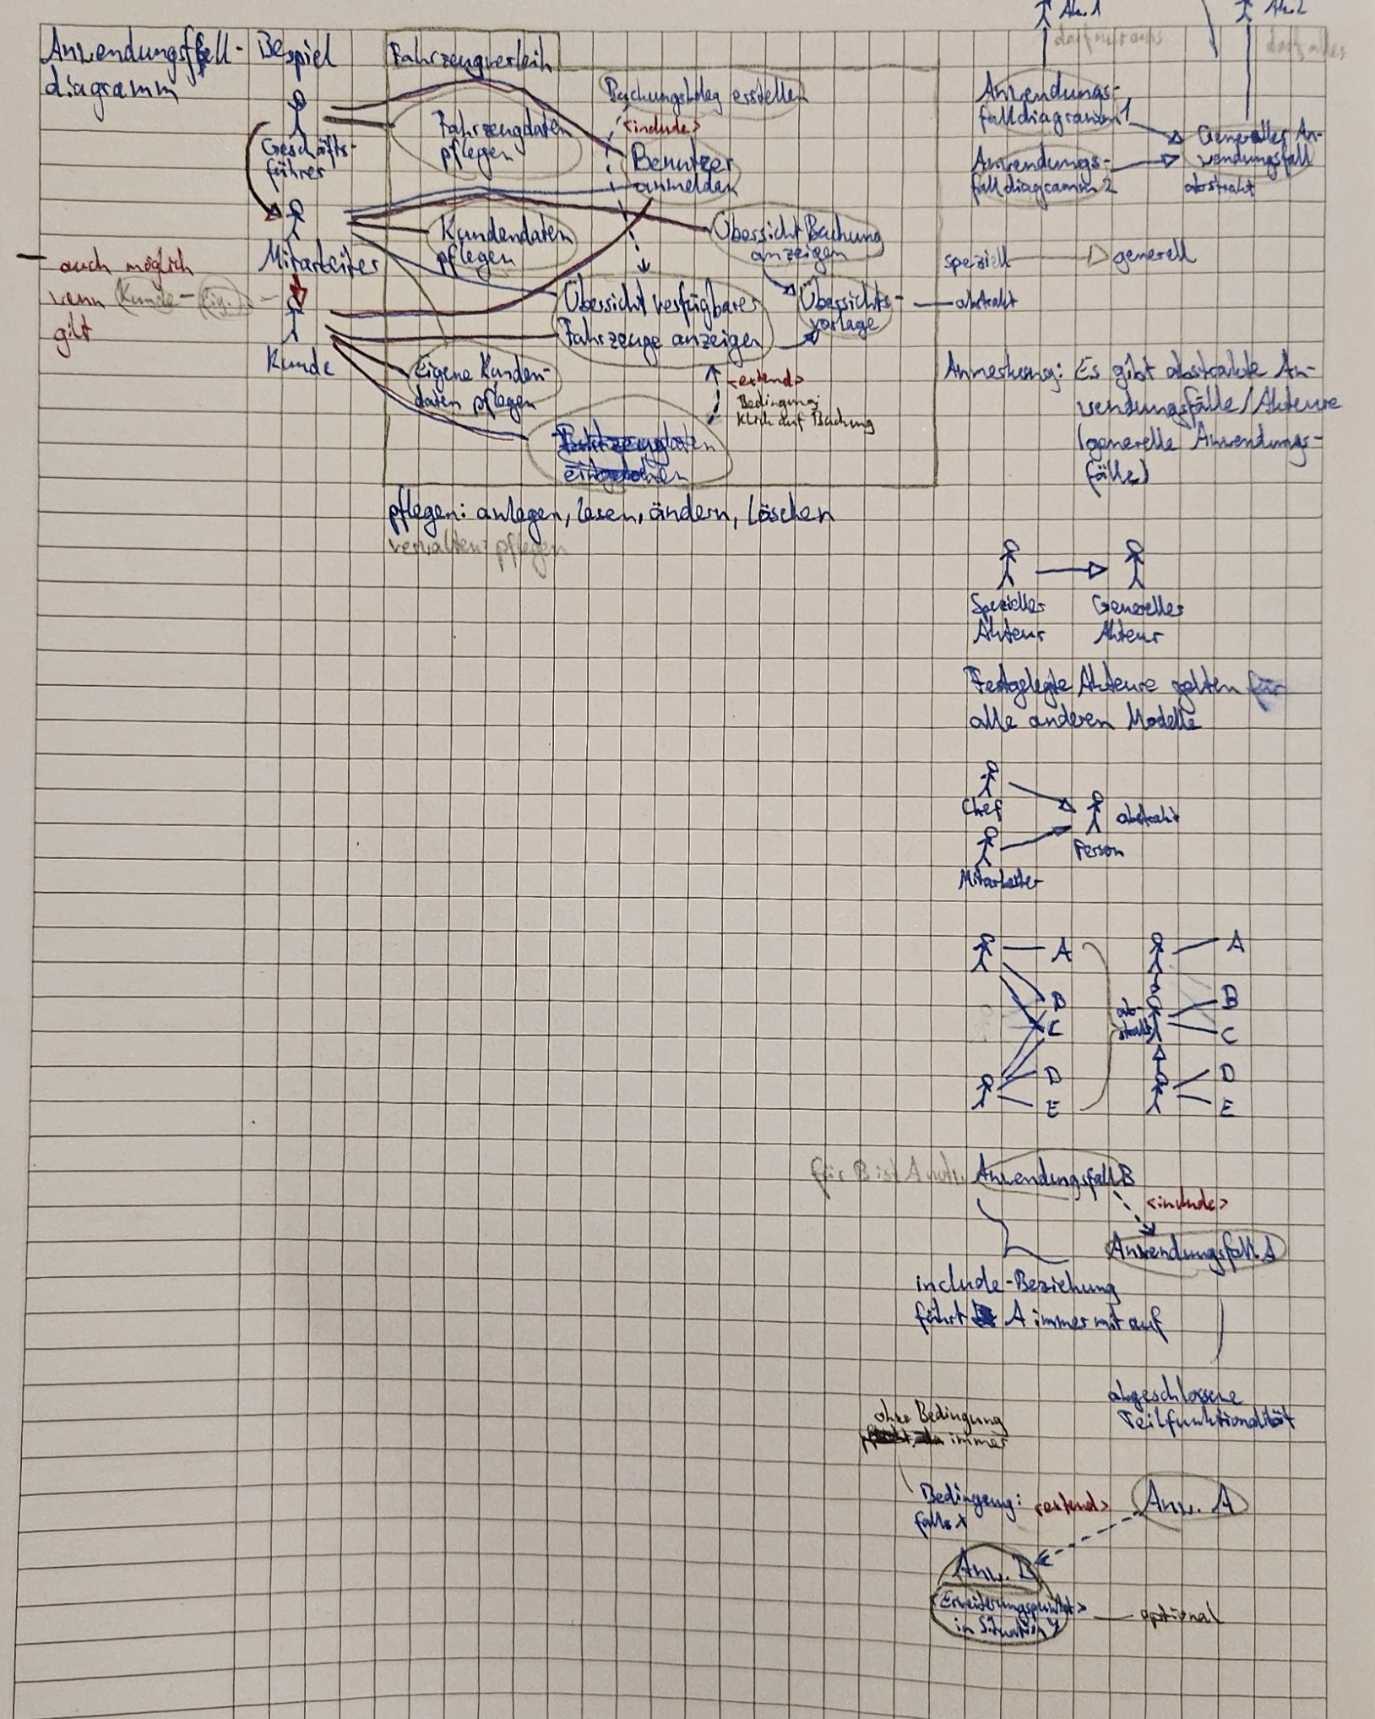 Anwendungsfall-
diagramm
Beispiel
Fahrzeugverleih
Geschäfts-
führer
Mitarbeiter
Kunde
auch möglich
wenn Kunde-Eig.
gilt
Fahrzeugdaten
pflegen
Kundendaten
pflegen
Eigene Kunden-
daten pflegen
Buchungsbeleg erstellen
<include>
Benutzer
anmelden
Übersicht Buchung
anzeigen
Übersicht verfügbarer
Fahrzeuge anzeigen
Übersichts-
vorlage
abstrakt
<extend>
Bedingung:
Klick auf Buchung
pflegen: anlegen, lesen, ändern, löschen
verwalten = pflegen
Ak. 1
darf nur eins
Ak. 2
darf alles
Anwendungs-
falldiagramm 1
Anwendungs-
falldiagramm 2
Genereller An-
wendungsfall
abstrakt
speziell
generell
Anmerkung: Es gibt abstrakte An-
wendungsfälle/Akteure
(generelle Anwendungs-
fälle)
Spezieller
Akteur
Genereller
Akteur
Festgelegte Akteure gelten für
alle anderen Modelle
Chef
Mitarbeiter
abstrakt
Person
A
B
C
D
E
ab-
strakt
A
B
C
D
E
für B ist A
Anwendungsfall B
<include>
Anwendungsfall A
include-Beziehung
führt A immer mit auf
abgeschlossene
Teilfunktionalität
ohne Bedingung
immer
Bedingung:
falls x
<extend>
Anw. A
Anw.
<Erweiterungspunkt>
in Situation y
optional